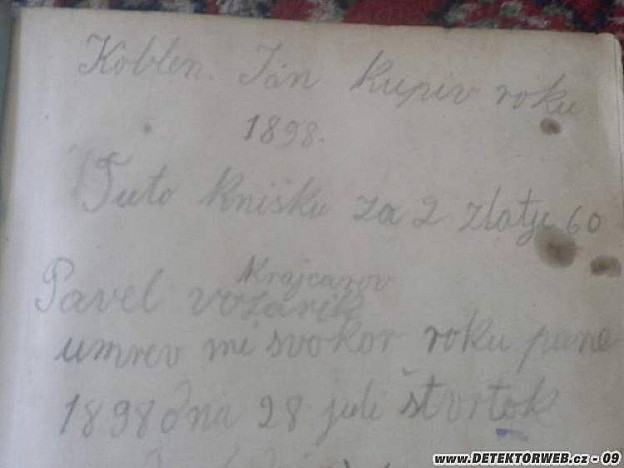 Koblen. Ján kupiv roku
1898.
Tuto knišku za 2 zlatje 60
Krajcarov
Pavel vozárik
umrev mi svokor roku pane
1898 dna 28 juli štvrtok
www.DETEKTORWEB.cz - 09